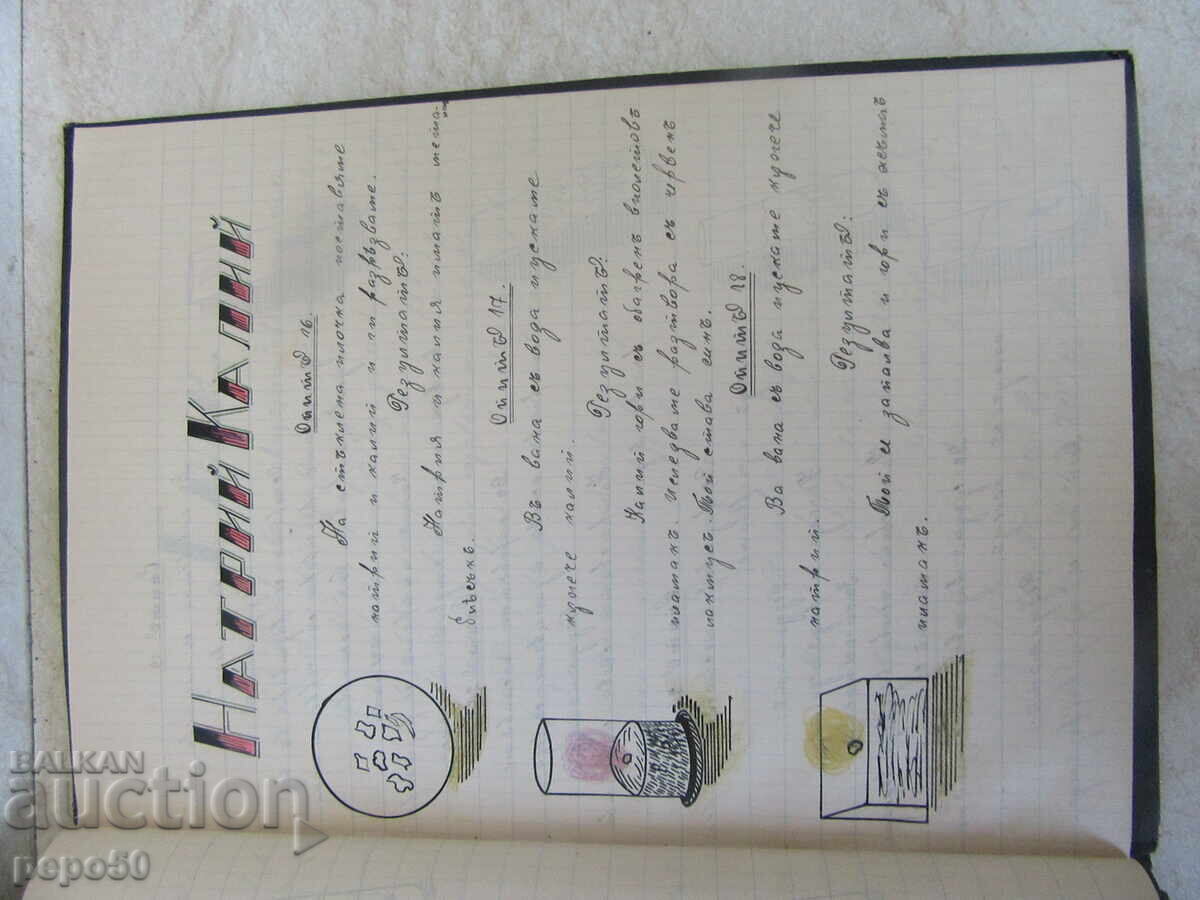 НАТРИЙ КАЛИЙ
Опитъ 16.
На стъклена плочка поставяте
натрий и калий и ги разрѣзвате.
Резултатъ:
Натрия и калия иматъ мета-
ленъ
блѣсъкъ.
Опитъ 17.
Въ вана съ вода пускате
кусече калий.
Резултатъ:
Калий гори съ обагренъ виолетовъ
пламак. Иследвате разтвора съ червенъ
лакмусъ. Той става синъ.
Опитъ 18.
Ва вана съ вода пускате кусече
натрий.
Резултатъ:
Той се запалва и гори съ жълтъ
пламакъ.
BALKAN
auction
pepo50